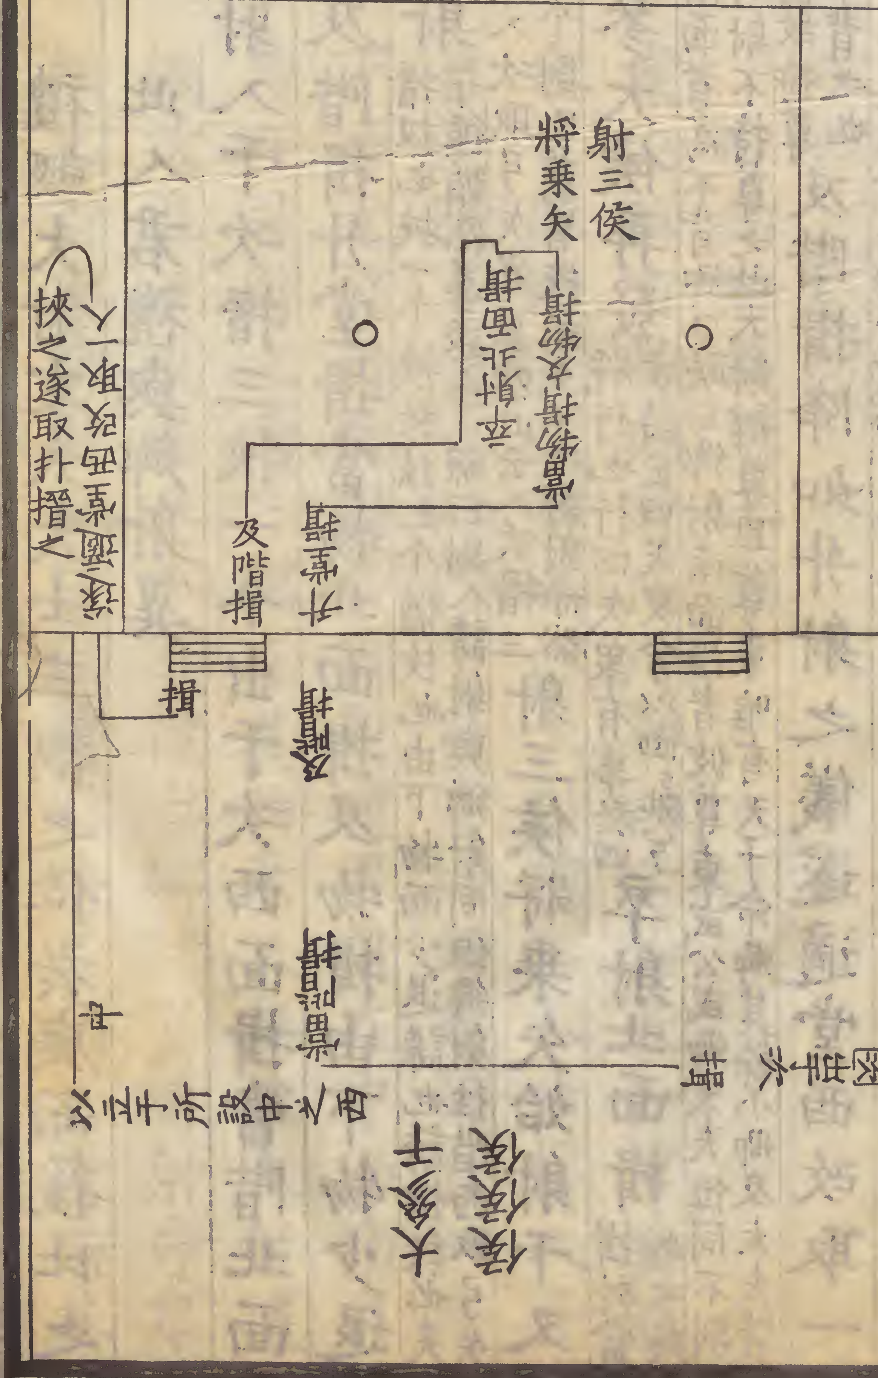 射三侯
將乗矢
當物揖及物揖
卒射北面揖
升堂揖
及階揖
遂適堂西改取一个
挾之遂取扑搢之
揖
及階揖
當階揖
揖
出次
中
以立于所設中之西
大參干
侯侯侯